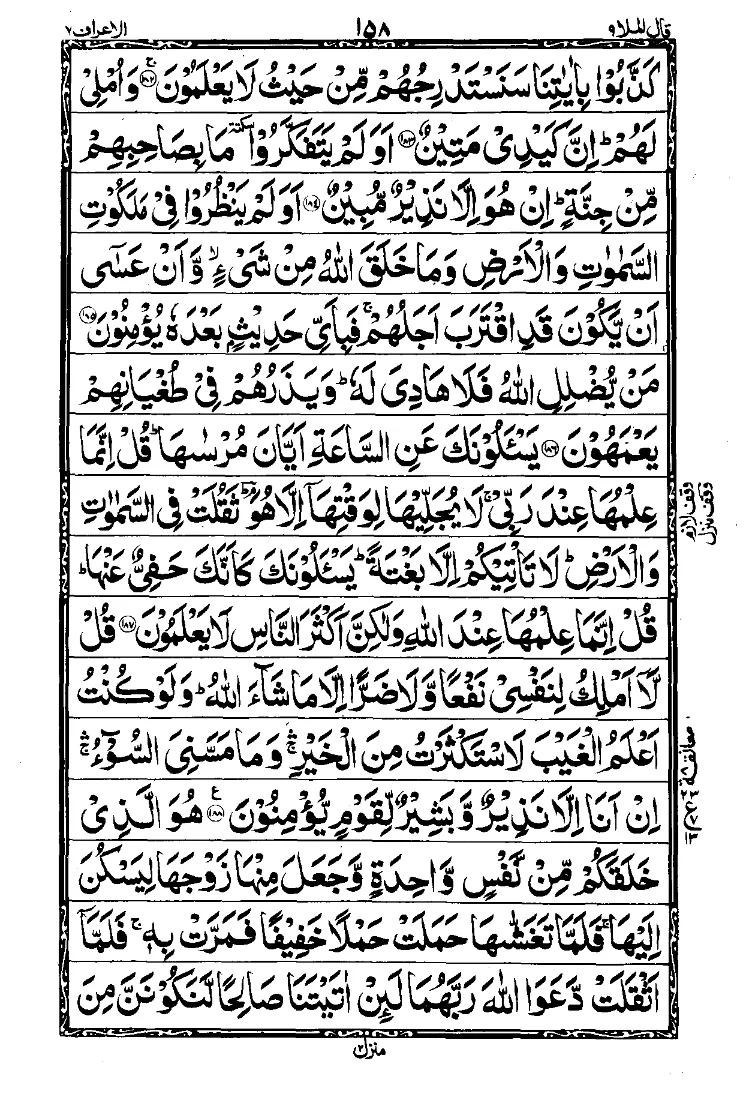 قال الملا ٩ ١٥٨ الاعراف ٧
كَذَّبُوۡا بِاٰيٰتِنَا سَنَسۡتَدۡرِجُهُمۡ مِّنۡ حَيۡثُ لَا يَعۡلَمُوۡنَ ۝١٨٢ وَاُمۡلِىۡ
لَهُمۡ ؕ اِنَّ كَيۡدِىۡ مَتِيۡنٌ ۝١٨٣ اَوَلَمۡ يَتَفَكَّرُوۡا ٚ مَا بِصَاحِبِهِمۡ
مِّنۡ جِنَّةٍ ؕ اِنۡ هُوَ اِلَّا نَذِيۡرٌ مُّبِيۡنٌ ۝١٨٤ اَوَلَمۡ يَنۡظُرُوۡا فِىۡ مَلَكُوۡتِ
السَّمٰوٰتِ وَالۡاَرۡضِ وَمَا خَلَقَ اللّٰهُ مِنۡ شَىۡءٍ ۙ وَّاَنۡ عَسٰٓى
اَنۡ يَّكُوۡنَ قَدِ اقۡتَرَبَ اَجَلُهُمۡ ۚ فَبِاَىِّ حَدِيۡثٍۢ بَعۡدَهٗ يُؤۡمِنُوۡنَ ۝١٨٥
مَنۡ يُّضۡلِلِ اللّٰهُ فَلَا هَادِىَ لَهٗ ؕ وَيَذَرُهُمۡ فِىۡ طُغۡيَانِهِمۡ
يَعۡمَهُوۡنَ ۝١٨٦ يَسۡئَلُوۡنَكَ عَنِ السَّاعَةِ اَيَّانَ مُرۡسٰٮهَا ؕ قُلۡ اِنَّمَا
عِلۡمُهَا عِنۡدَ رَبِّىۡ ۚ لَا يُجَلِّيۡهَا لِوَقۡتِهَاۤ اِلَّا هُوَ ؔؕ ثَقُلَتۡ فِى السَّمٰوٰتِ
وقف لازم
وقف منزل
وَالۡاَرۡضِ ؕ لَا تَاۡتِيۡكُمۡ اِلَّا بَغۡتَةً ؕ يَسۡئَلُوۡنَكَ كَاَنَّكَ حَفِىٌّ عَنۡهَا ؕ
قُلۡ اِنَّمَا عِلۡمُهَا عِنۡدَ اللّٰهِ وَلٰـكِنَّ اَكۡثَرَ النَّاسِ لَا يَعۡلَمُوۡنَ ۝١٨٧ قُلْ
لَّاۤ اَمۡلِكُ لِنَفۡسِىۡ نَفۡعًا وَّلَا ضَرًّا اِلَّا مَا شَآءَ اللّٰهُ ؕ وَلَوۡ كُنۡتُ
اَعۡلَمُ الۡغَيۡبَ لَاسۡتَكۡثَرۡتُ مِنَ الۡخَيۡرِ ۛۚ وَمَا مَسَّنِىَ السُّوۡٓءُ ۛۚ
اِنۡ اَنَا اِلَّا نَذِيۡرٌ وَّبَشِيۡرٌ لِّقَوۡمٍ يُّؤۡمِنُوۡنَ ۝١٨٨ ع هُوَ الَّذِىۡ
خَلَقَكُمۡ مِّنۡ نَّفۡسٍ وَّاحِدَةٍ وَّجَعَلَ مِنۡهَا زَوۡجَهَا لِيَسۡكُنَ
اِلَيۡهَا ۚ فَلَمَّا تَغَشّٰٮهَا حَمَلَتۡ حَمۡلًا خَفِيۡفًا فَمَرَّتۡ بِهٖ ۚ فَلَمَّاۤ
اَثۡقَلَتۡ دَّعَوَا اللّٰهَ رَبَّهُمَا لَئِنۡ اٰتَيۡتَنَا صَالِحًا لَّنَكُوۡنَنَّ مِنَ
منزل ٢